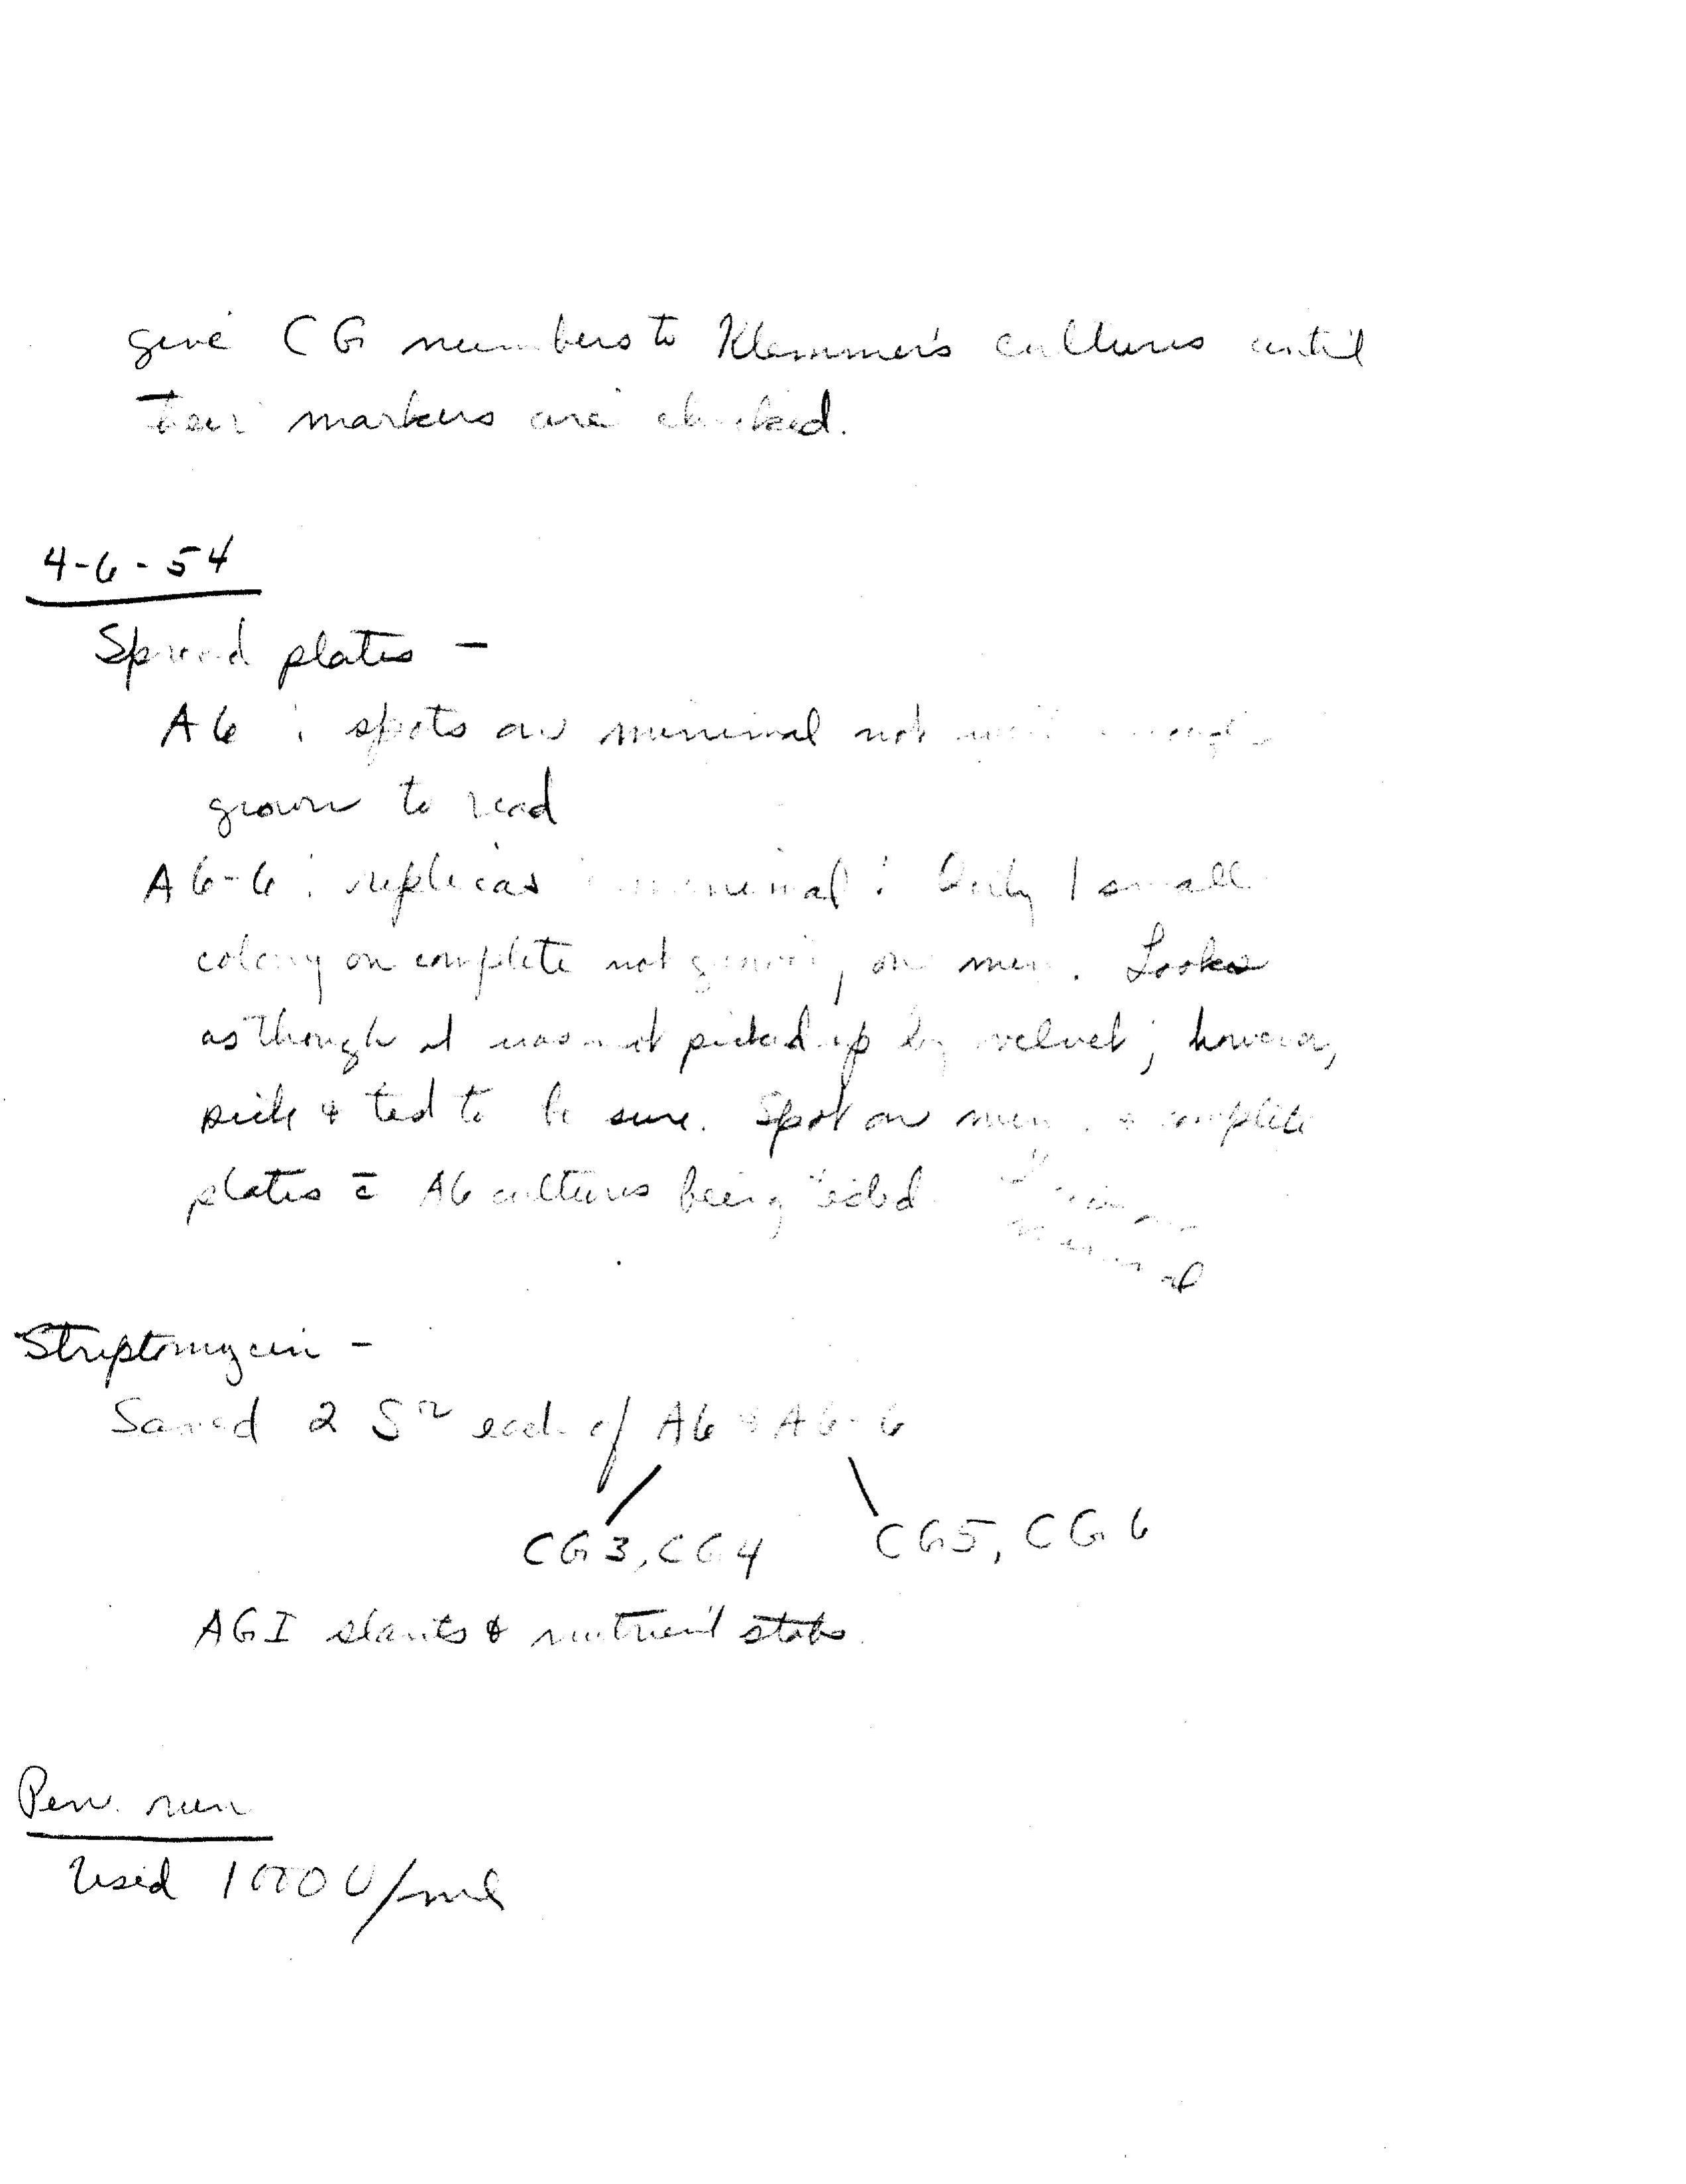 give CG numbers to Klemmer's cultures until
their markers are checked.
4-6-54
Spread plates -
A6 : spots on minimal not well enough
grown to read
A6-6 : replicas minimal : Only 1 small
colony on complete not growing on min. Looks
as though it was not picked up by velvet ; however,
pick & test to be sure. Spot on min. & complete
plates c̄ A6 cultures being tested.
minimal
Streptomycin -
Saved 2 Sʳ each of A6 & A6-6
CG3, CG4 CG5, CG6
AGI slants & nutrient stabs.
Pen. run
Used 1000 U/ml